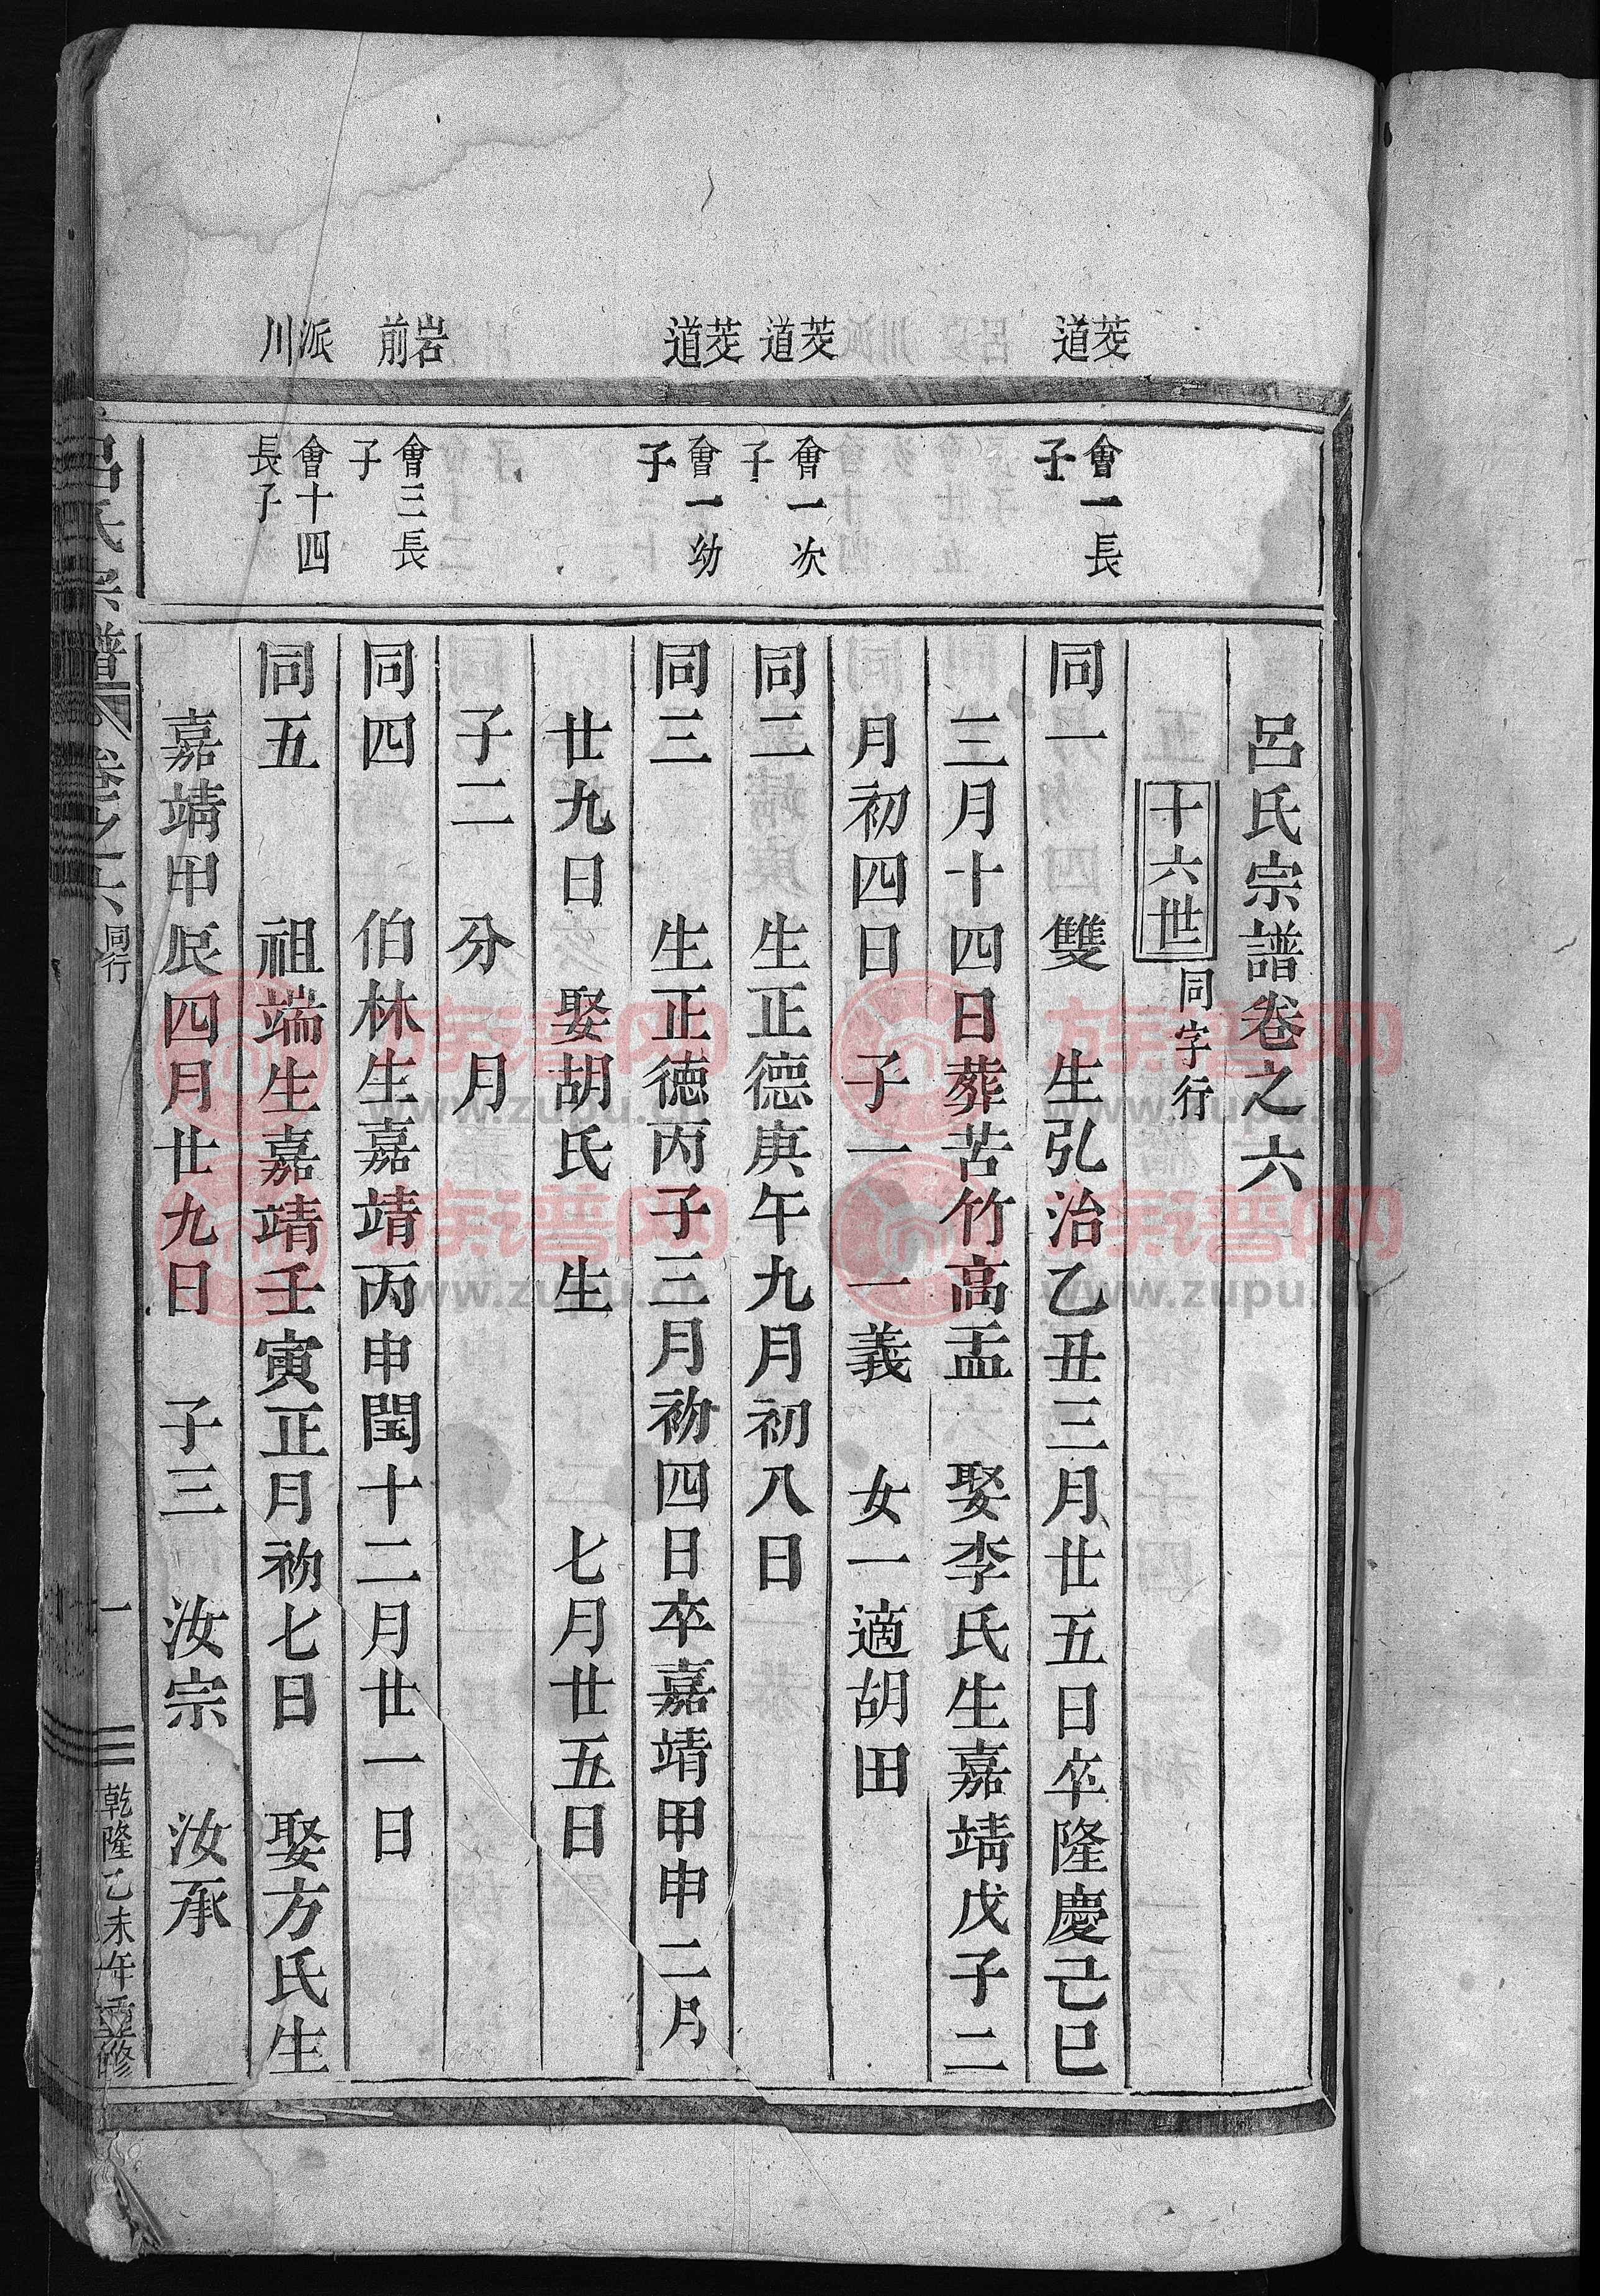 呂氏宗譜卷之六
十六世 同字行
茭道
會一長子
同一 雙 生弘治乙丑三月廿五日卒隆慶己巳
三月十四日葬苦竹高孟 娶李氏生嘉靖戊子二
月初四日 子一 一義 女一適胡田
茭道
會一次子
同二 生正德庚午九月初八日
茭道
會一幼子
同三 生正德丙子三月初四日卒嘉靖甲申二月
廿九日 娶胡氏 生 七月廿五日
子二 分 月
岩前
會三長子
同四 伯林生嘉靖丙申閏十二月廿一日
派川
會十四長子
同五 祖端生嘉靖壬寅正月初七日 娶方氏生
嘉靖甲辰四月廿九日 子三 汝宗 汝承
呂氏宗譜 卷之六 同行 一 乾隆乙未年重修
族谱网
www.zupu.cn
族谱网
www.zupu.cn
族谱网
www.zupu.cn
族谱网
www.zupu.cn